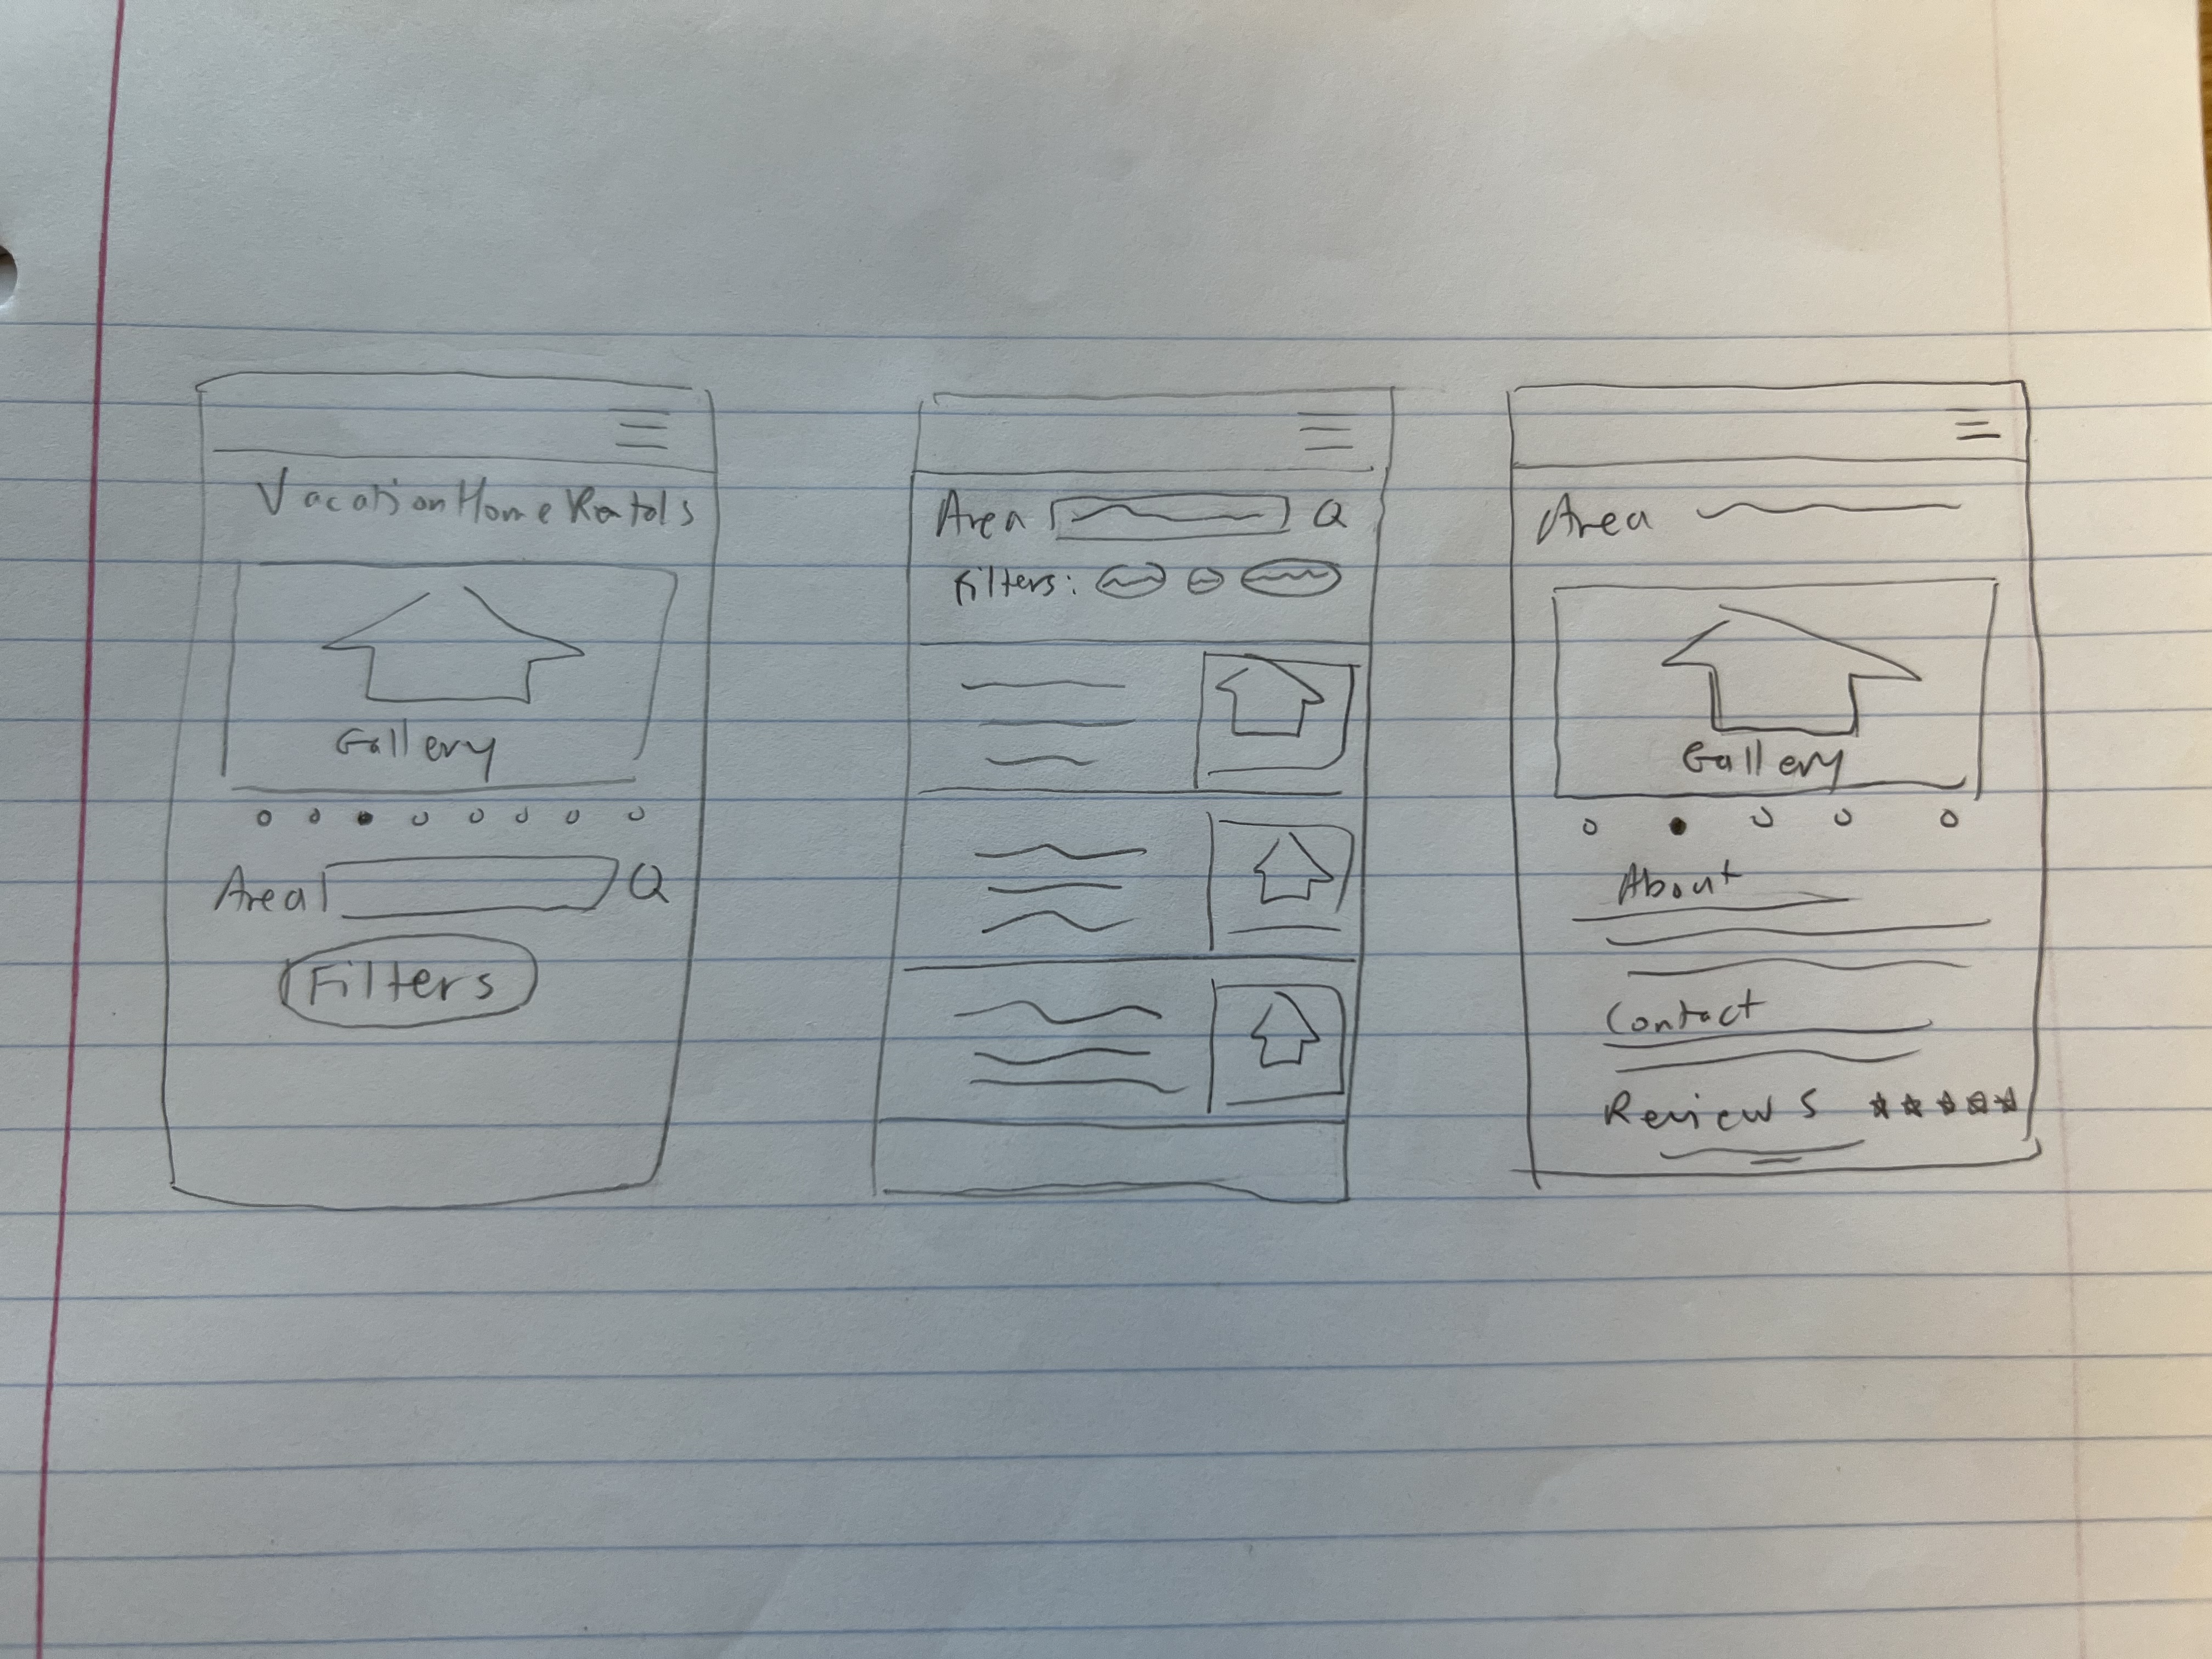 Vacation Home Rentals
Gallery
Area
Filters
Area
Filters:
Area
Gallery
About
Contact
Reviews